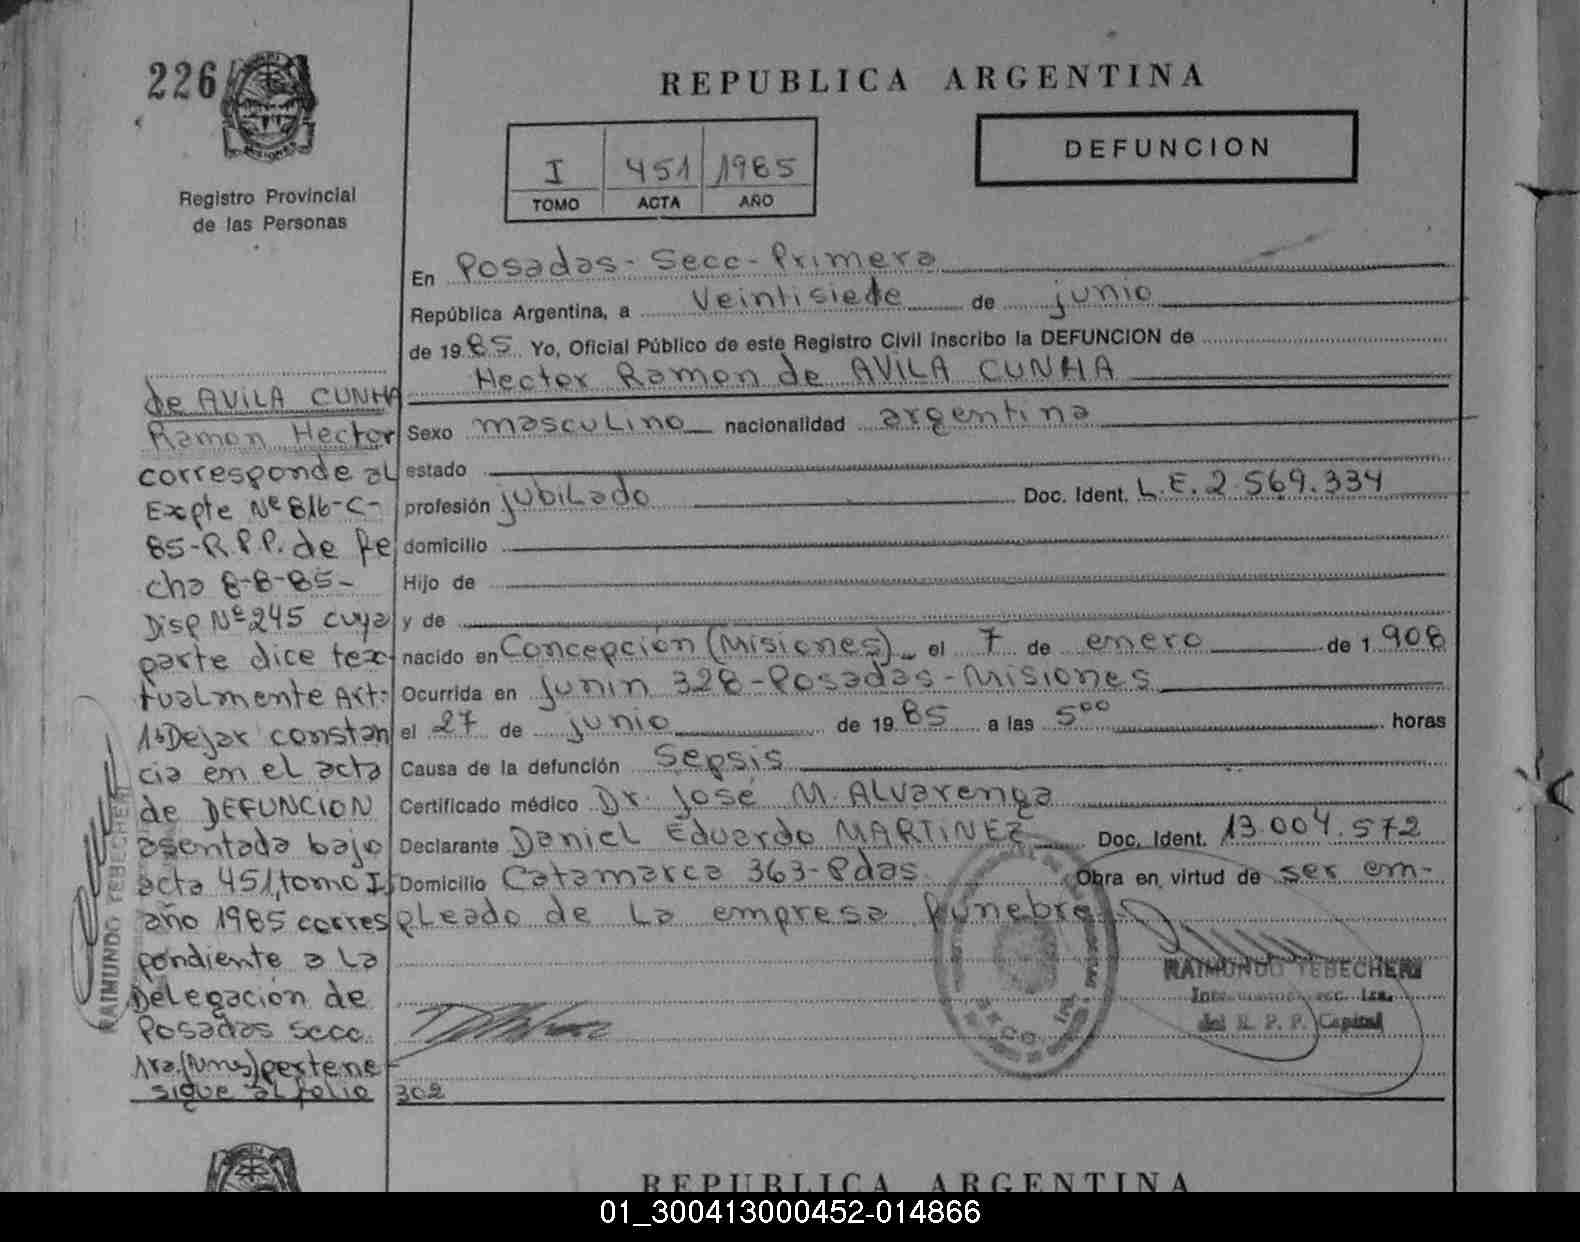 226
Registro Provincial
de las Personas
REPUBLICA ARGENTINA
I 451 1985
TOMO ACTA AÑO
DEFUNCION
En Posadas - Secc - Primera
República Argentina, a Veintisiete de junio
de 1985 Yo, Oficial Público de este Registro Civil inscribo la DEFUNCION de
Hector Ramon de AVILA CUNHA
Sexo masculino nacionalidad argentina
estado
profesión jubilado Doc. Ident. L.E. 2.569.334
domicilio
Hijo de
y de
nacido en Concepción (Misiones) el 7 de enero de 1908
Ocurrida en Junin 328 - Posadas - Misiones
el 27 de junio de 1985 a las 5⁰⁰ horas
Causa de la defunción Sepsis
Certificado médico Dr. José M. Alvarenga
Declarante Daniel Eduardo MARTINEZ Doc. Ident. 13.004.572
Domicilio Catamarca 363 - Pdas. Obra en virtud de ser em-
pleado de la empresa fúnebre
RAIMUNDO TEBECHERI
del R. P. P. Capital
302
de AVILA CUNHA
Ramon Hector
corresponde al
Expte Nº 816-C-
85-R.P.P. de fe
cha 8-8-85-
Disp Nº 245 cuya
parte dice tex-
tualmente Art:
1º Dejar constan
cia en el acta
de DEFUNCION
asentada bajo
acta 451, tomo I,
año 1985 corres
pondiente a la
Delegación de
Posadas Secc.
1ra. (Mnes) pertene
sigue al folio
RAIMUNDO TEBECHERI
REPUBLICA ARGENTINA
01_300413000452-014866